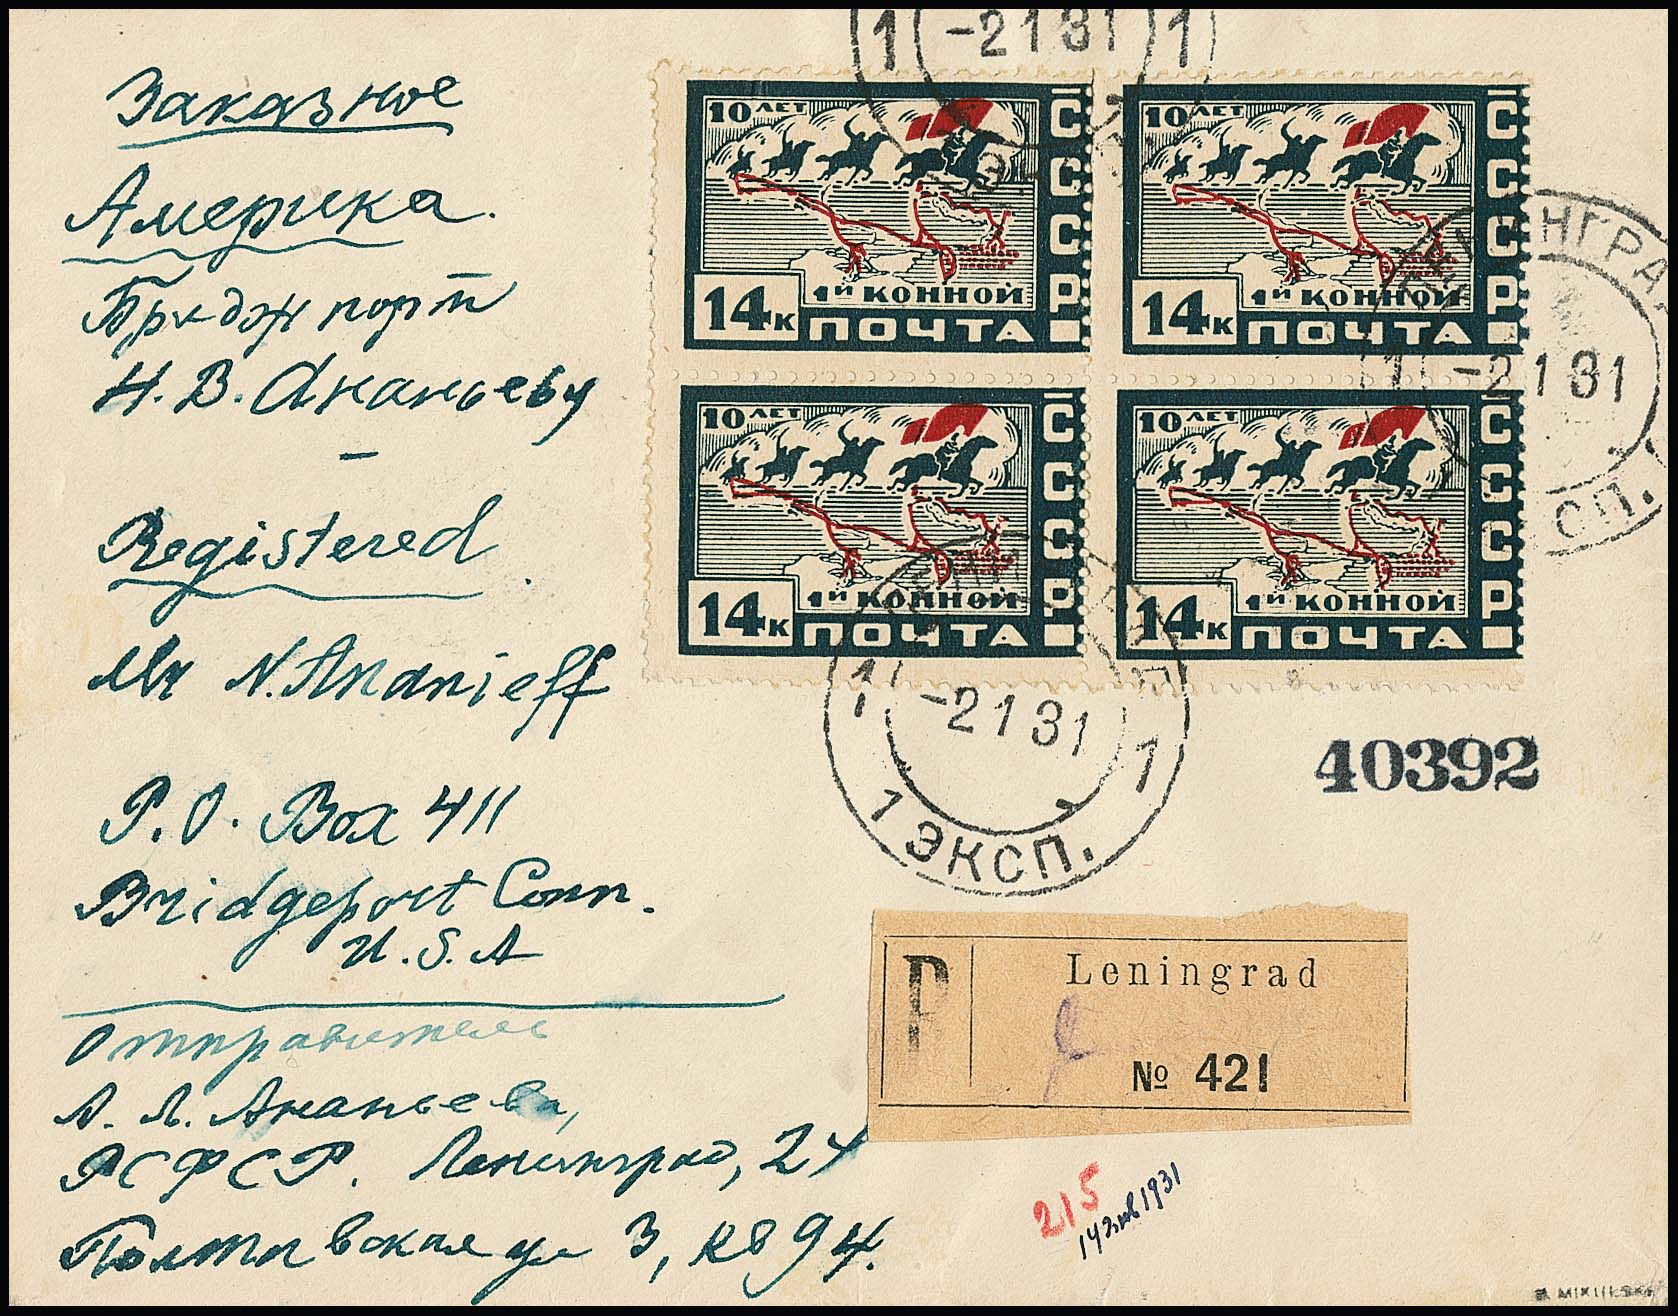 Заказное
Америка.
Бриджпорт
Н. В. Ананьеву
Registered
Mr N. Ananieff
P. O. Box 411
Bridgeport Conn.
U. S. A
Отправитель
А. Л. Ананьева,
РСФСР. Ленинград, 24
Полтавская ул 3, кв 94.
1 -2 1 31 1
10 ЛЕТ
СССР
14 К
1Й КОННОЙ
ПОЧТА
10 ЛЕТ
СССР
14 К
1Й КОННОЙ
ПОЧТА
10 ЛЕТ
СССР
14 К
1Й КОННОЙ
ПОЧТА
10 ЛЕТ
СССР
14 К
1Й КОННОЙ
ПОЧТА
ЛЕНИНГРАД
1 -2 1 31
ЭКСП.
1 -2 1 31 1
1 ЭКСП.
40392
R Leningrad
№ 421
215
14 янв 1931